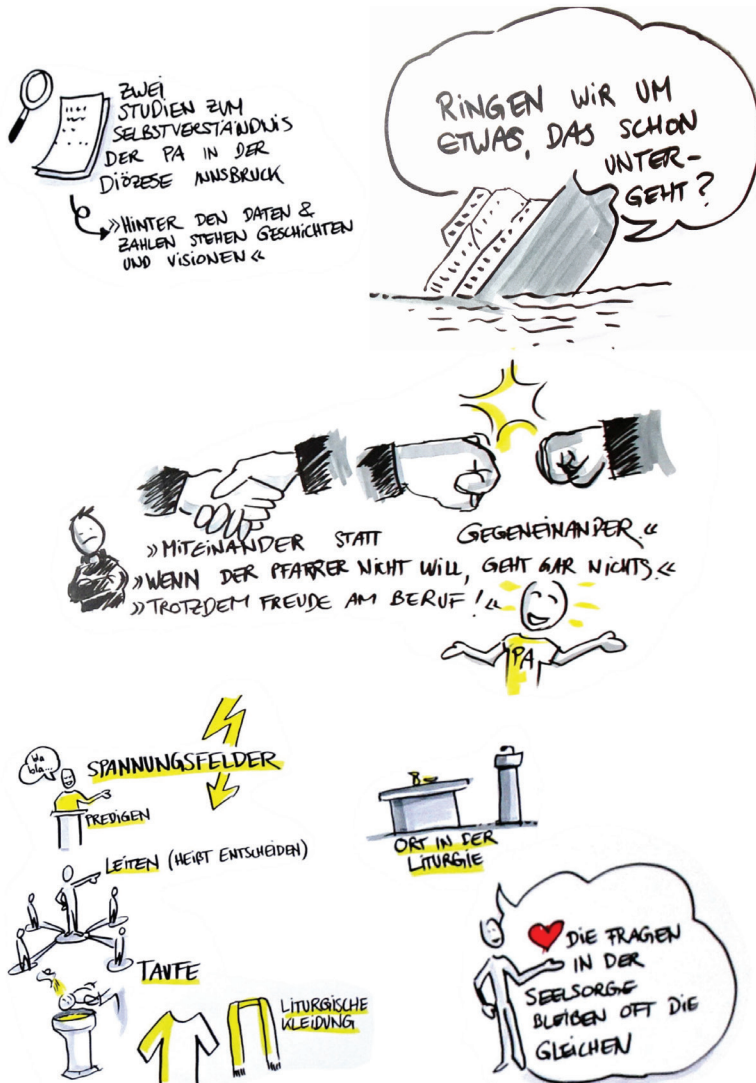 ZWEI
STUDIEN ZUM
SELBSTVERSTÄNDNIS
DER PA IN DER
DIÖZESE INNSBRUCK
»HINTER DEN DATEN &
ZAHLEN STEHEN GESCHICHTEN
UND VISIONEN«
RINGEN WIR UM
ETWAS, DAS SCHON
UNTER-
GEHT?
»MITEINANDER STATT GEGENEINANDER.«
»WENN DER PFARRER NICHT WILL, GEHT GAR NICHTS.«
»TROTZDEM FREUDE AM BERUF!«
PA
SPANNUNGSFELDER
bla...
PREDIGEN
LEITEN (HEIßT ENTSCHEIDEN)
TAUFE
LITURGISCHE
KLEIDUNG
ORT IN DER
LITURGIE
DIE FRAGEN
IN DER
SEELSORGE
BLEIBEN OFT DIE
GLEICHEN